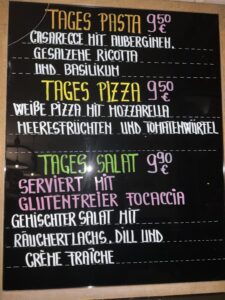 TAGES PASTA 9⁵⁰ €
CASARECCE MIT AUBERGINEN,
GESALZENE RICOTTA
UND BASILIKUM
TAGES PIZZA 9⁵⁰ €
WEIßE PIZZA MIT MOZZARELLA
MEERESFRÜCHTEN UND TOMATENWÜRFEL
TAGES SALAT 9⁹⁰ €
SERVIERT MIT
GLUTENFREIER FOCACCIA
GEMISCHTER SALAT MIT
RÄUCHERLACHS, DILL UND
CRÈME FRAÎCHE